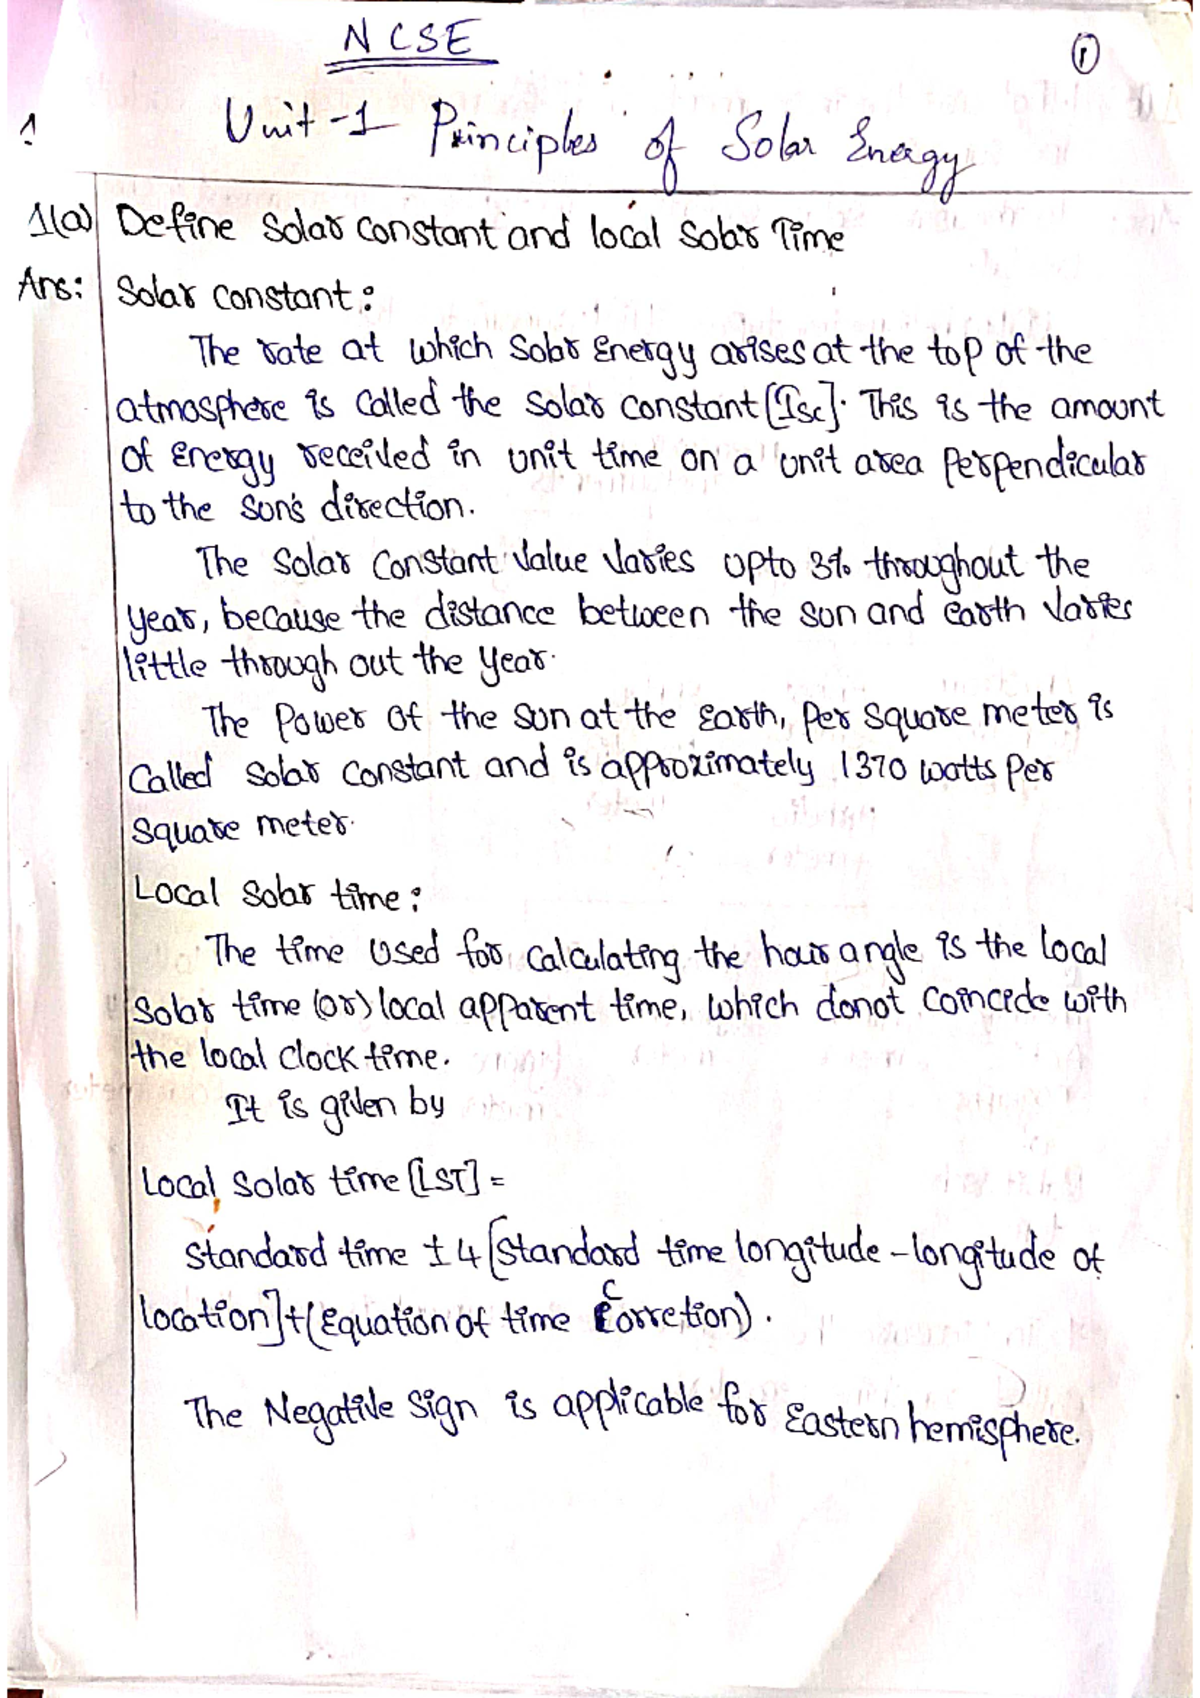 NCSE
1
Unit-1 Principles of Solar Energy
1(a) Define Solar Constant and local Solar Time
Ans: Solar constant:
The rate at which Solar Energy arises at the top of the
atmosphere is called the Solar constant [Isc]. This is the amount
of Energy received in unit time on a unit area Perpendicular
to the sun's direction.
The Solar Constant Value Varies upto 3% throughout the
year, because the distance between the sun and earth Varies
little through out the year.
The Power of the sun at the Earth, Per Square meter is
Called Solar Constant and is approximately 1370 watts Per
Square meter.
Local Solar time:
The time Used for Calculating the hour angle is the local
Solar time (or) local apparent time, which donot Coincide with
the local clock time.
It is given by
Local Solar time [LST] =
Standard time ± 4 [Standard time longitude - longitude of
location] + (Equation of time Corretion).
The Negative Sign is applicable for Eastern hemisphere.